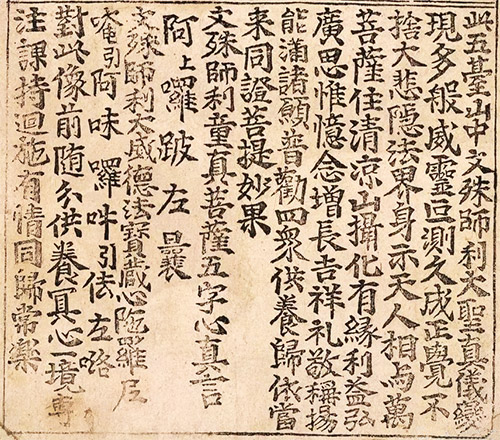 此五臺山中文殊師利大聖真儀變
現多般威靈叵測久成正覺不
捨大悲隱法界身示天人相与萬
菩薩住清凉山攝化有緣利益弘
廣思惟憶念增長吉祥礼敬稱揚
能滿諸願普勸四衆供養歸依當
来同證菩提妙果
文殊師利童真菩薩五字心真言
阿上囉跛左曩
文殊師利大威德法寶藏心陁羅尼
唵引阿味囉吽引佉左咯
對此像前随分供養冥心一境專
注課持迴施有情同歸常樂